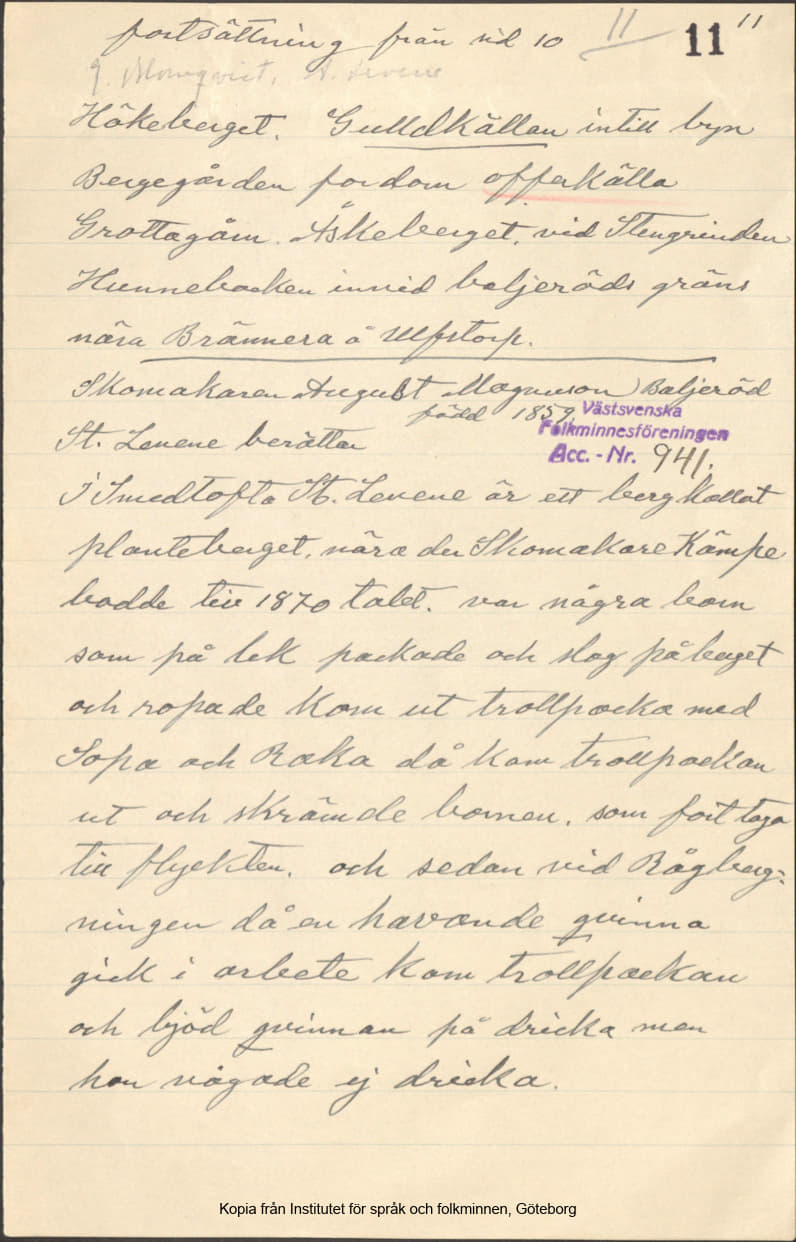 fortsättning från sid 10 11 11 11
Hökeberget. Gulldkällan intill byn
Bergegården fordom offerkälla
Grottagåm. Åskeberget, vid Stengrinden
Hunnebacken invid baljeröds gräns
nära Brännera å Ulfstorp.
Skomakaren August Magnuson Baljeröd
född 1859.
St. Levene berättar
Västsvenska
Folkminnesföreningen
Acc. - Nr. 941.
I Smedtofta St. Levene är ett berg kallat
planteberget, nära der Skomakare Kämpe
bodde till 1870 talet. var några barn
som på lek packade och slog på berget
och ropade Kom ut trollpacka med
Sopa och Raka då kom trollpackan
ut och skrämde barnen, som fort toga
till flyckten. och sedan vid Rågberg-
ningen då en havande qvinna
gick i arbete kom trollpackan
och bjöd qvinnan på dricka men
hon vågade ej dricka.
Kopia från Institutet för språk och folkminnen, Göteborg